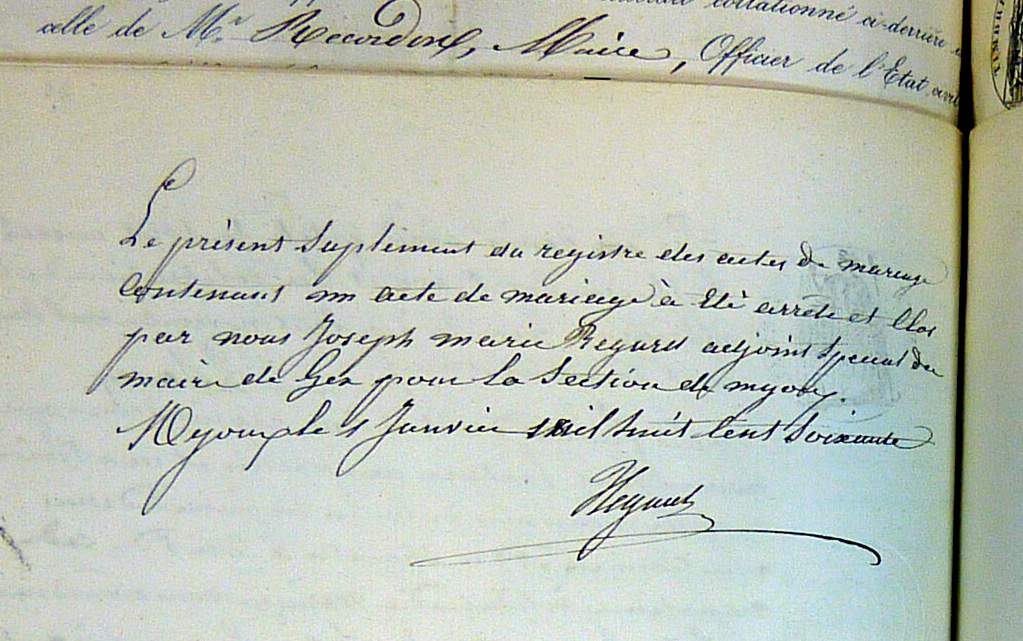 collationné ci-derrière
celle de Mr. Recordon, Maire, Officier de l'Etat civil
Le présent Suplément du registre des actes de mariage
Contenant un acte de mariage à Eté arrêté et Clos
par nous Joseph marie Regard adjoint Spécial du
maire de Gex pour la Section de mijoux.
Mijoux le 1 Janvier mil huit Cent Soixante
Regard